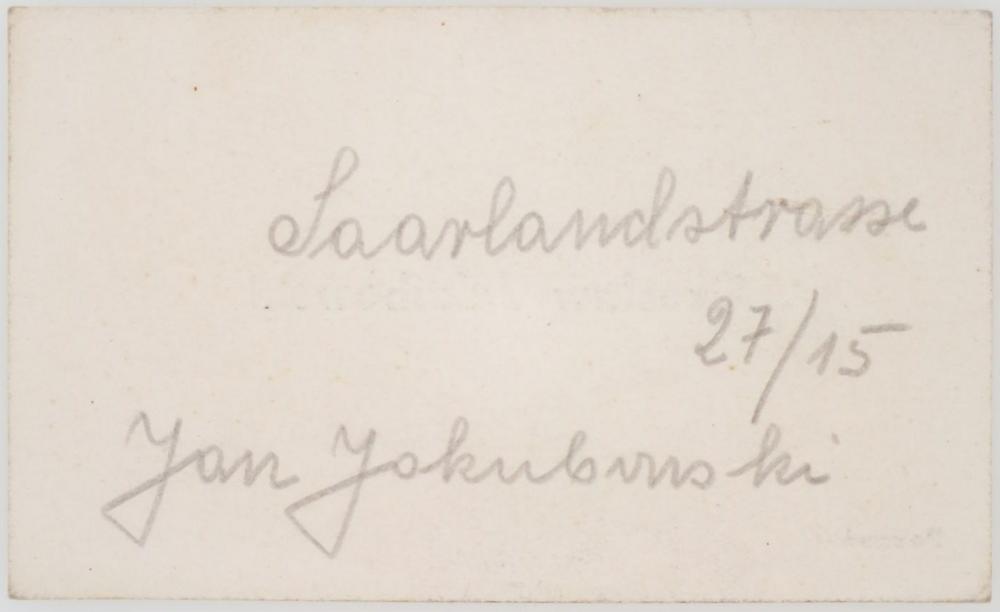 Saarlandstrasse
27/15
Jan Jakubowski